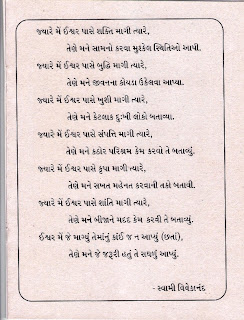 જ્યારે મેં ઈશ્વર પાસે શક્તિ માગી ત્યારે,
તેણે મને સામનો કરવા મુશ્કેલ સ્થિતિઓ આપી.
જ્યારે મેં ઈશ્વર પાસે બુદ્ધિ માગી ત્યારે,
તેણે મને જીવનના કોયડા ઉકેલવા આપ્યા.
જ્યારે મેં ઈશ્વર પાસે ખુશી માગી ત્યારે,
તેણે મને કેટલાક દુઃખી લોકો બતાવ્યા.
જ્યારે મેં ઈશ્વર પાસે સંપત્તિ માગી ત્યારે,
તેણે મને કઠોર પરિશ્રમ કેમ કરવો તે બતાવ્યું.
જ્યારે મેં ઈશ્વર પાસે કૃપા માગી ત્યારે,
તેણે મને સખત મહેનત કરવાની તકો બતાવી.
જ્યારે મેં ઈશ્વર પાસે શાંતિ માગી ત્યારે,
તેણે મને બીજાને મદદ કેમ કરવી તે બતાવ્યું.
ઈશ્વર મેં જે માગ્યું તેમાંનું કાંઈ જ ન આપ્યું (છતાં),
તેણે મને જે જરૂરી હતું તે સઘળું આપ્યું.
- સ્વામી વિવેકાનંદ